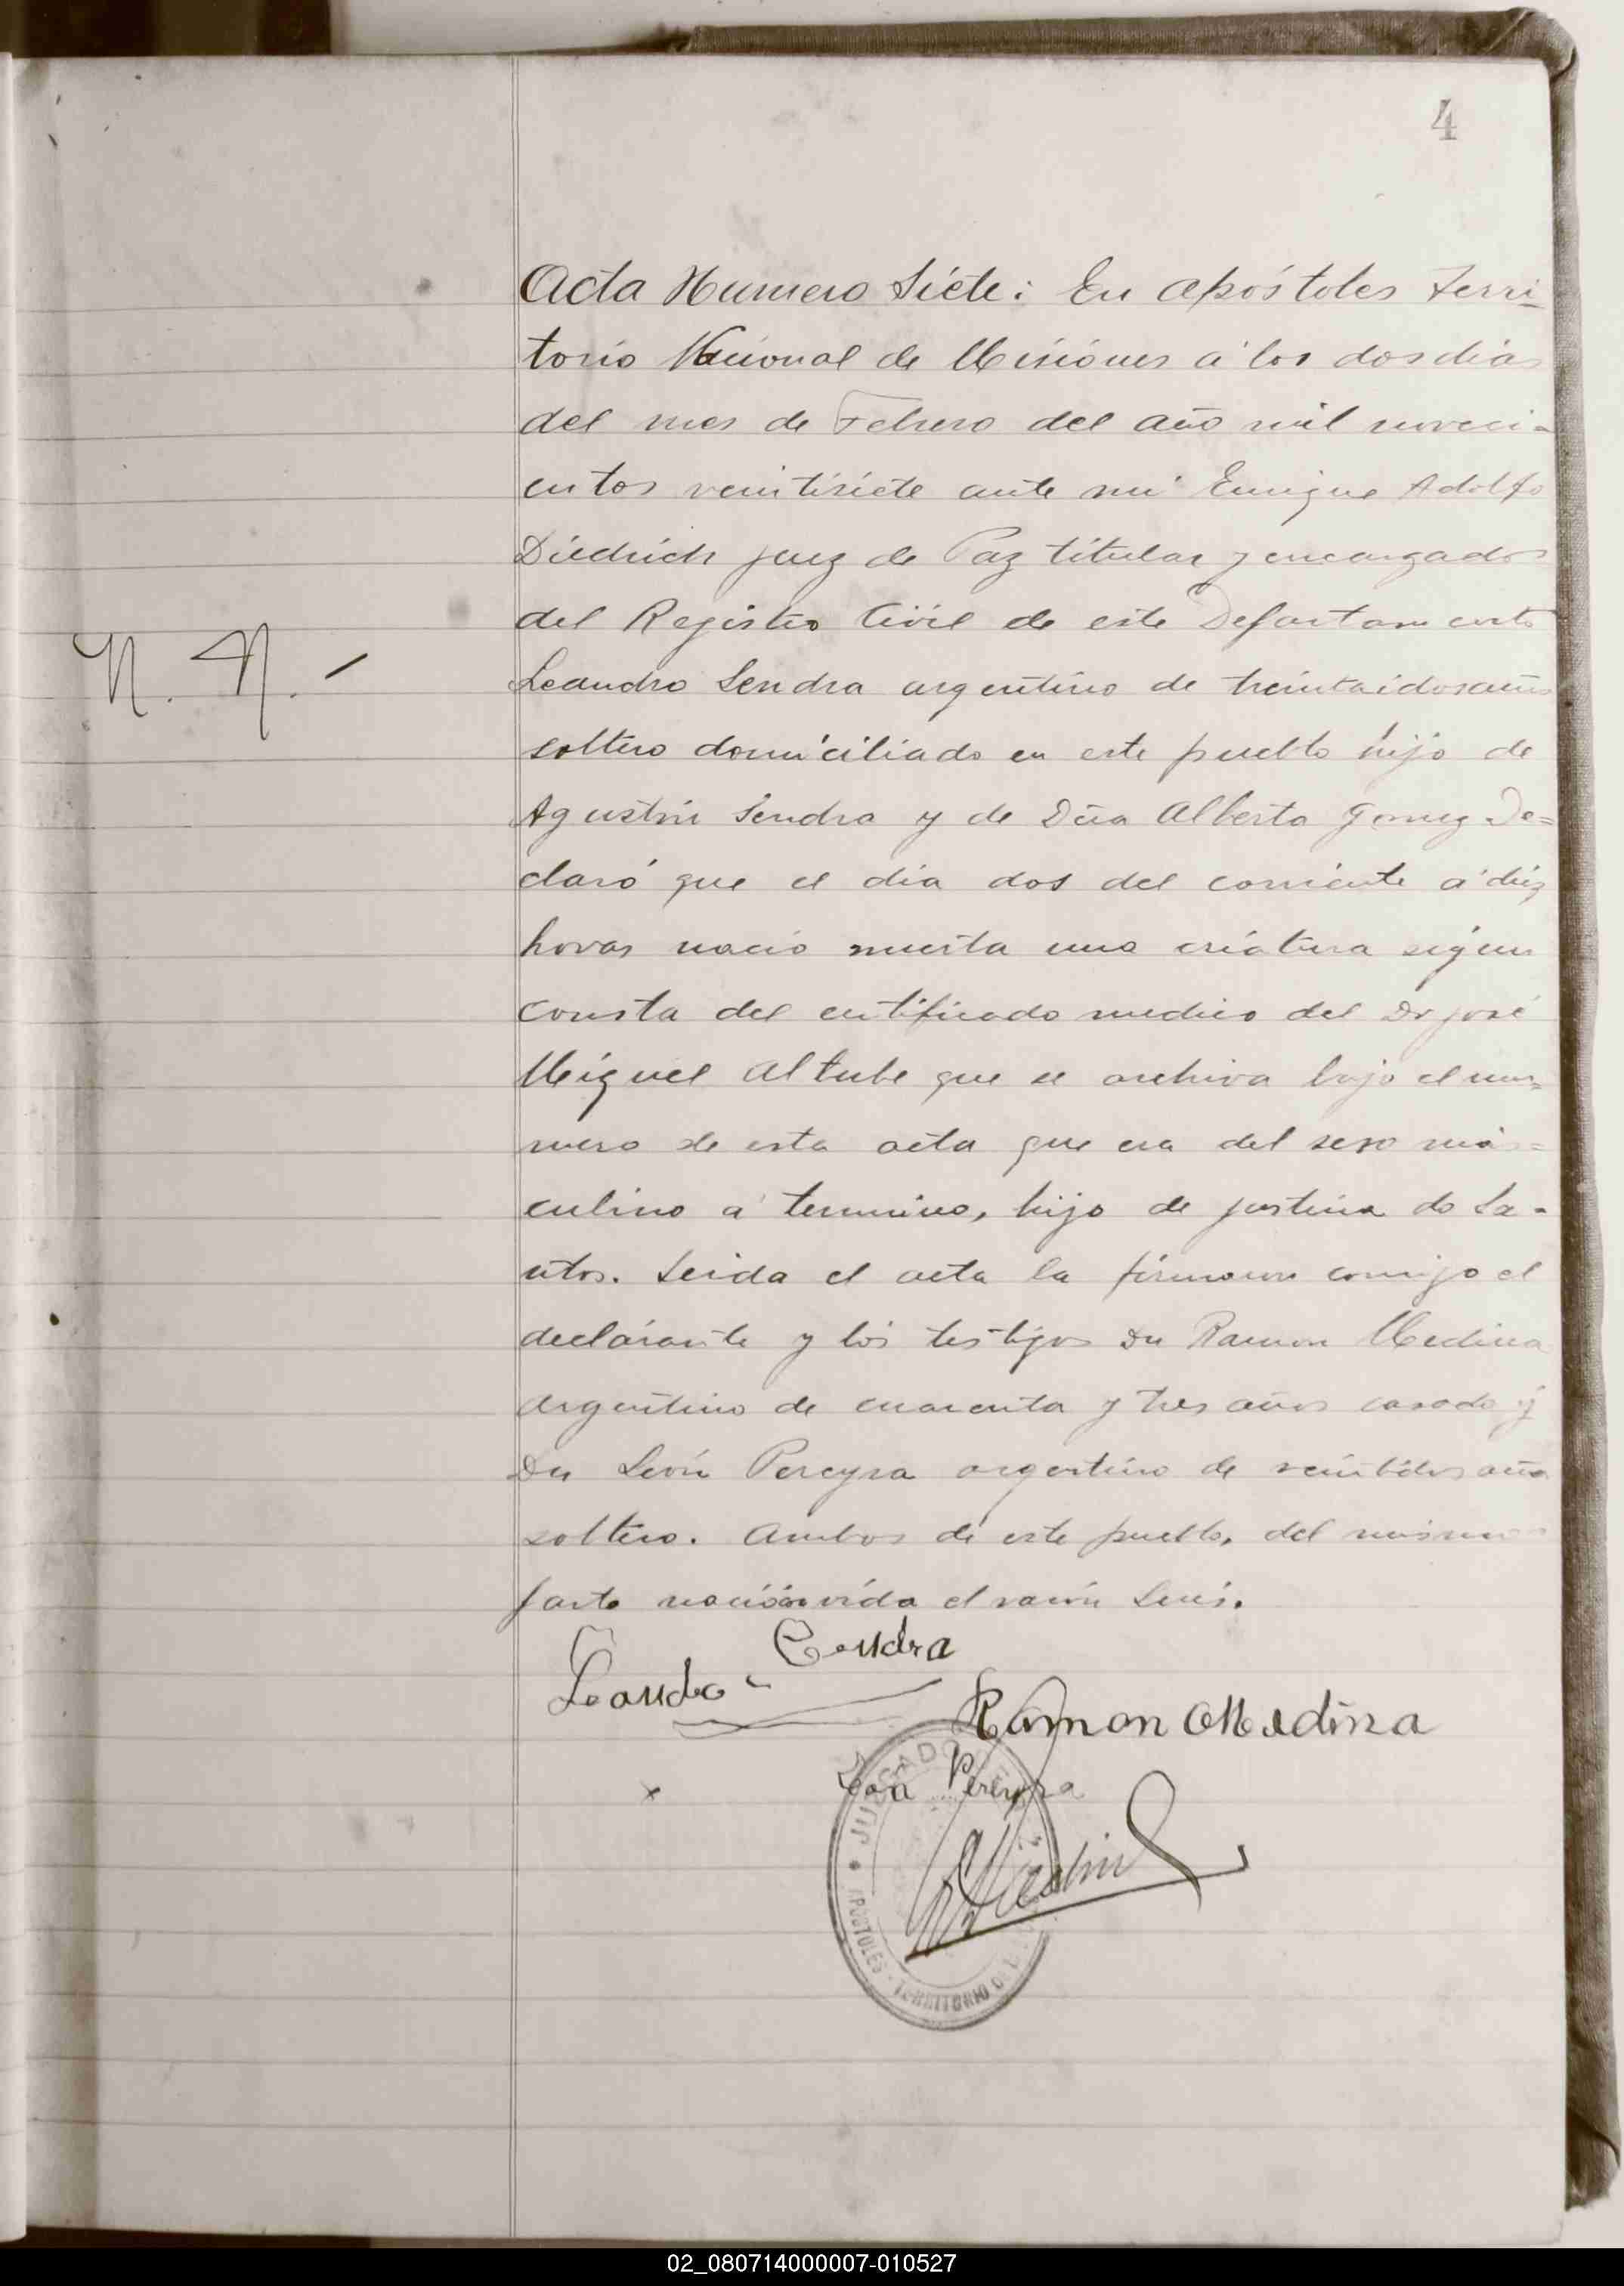 4
Acta Numero Siete: En Apóstoles Terri-
torio Nacional de Misiones á los dos dias
del mes de Febrero del año mil noveci-
entos veintisiete ante mi Enrique Adolfo
Diedrich juez de Paz titular y encargado
del Registro Civil de este Departamento
N. N. -
Leandro Sendra argentino de treintaidos años
soltero domiciliado en este pueblo hijo de
Agustin Sendra y de Dña Alberta Gomez De=
claró que el dia dos del corriente á diez
horas nació muerta una criatura segun
consta del certificado medico del Dr José
Miguel Altube que se archiva bajo el nu=
mero de esta acta que era del sexo mas=
culino á termino, hijo de justina do Sa-
ntos. Leida el acta la firmaron conmigo el
declarante y los testigos Dn Ramon Medina
argentino de cuarenta y tres años casado y
Dn León Pereyra argentino de veintidos años
soltero. Ambos de este pueblo, del mismo
parto nació vida el varón Luis.
Leandro Cendra
Ramon Medina
x Pereyra
JUZGADO
APOSTOLES · TERRITORIO DE
02_080714000007-010527